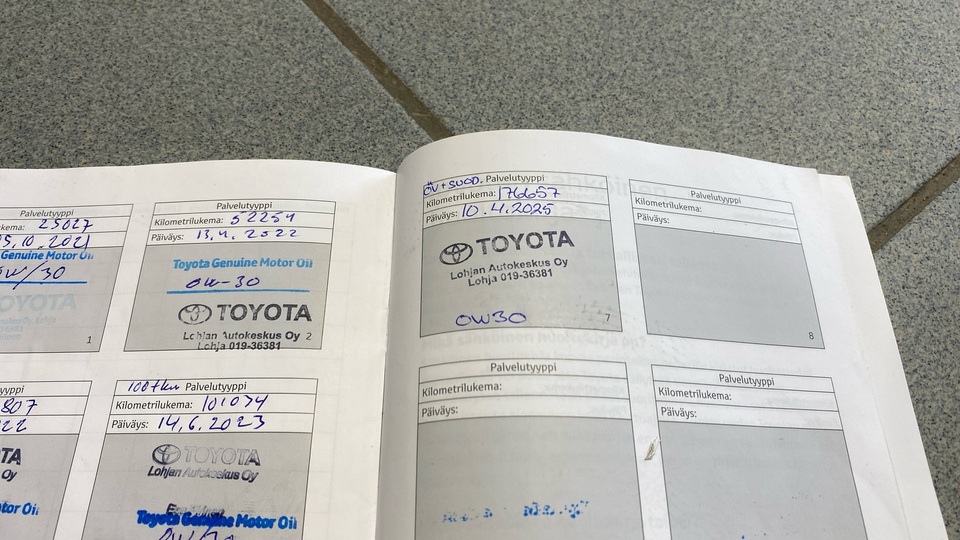 Palvelutyyppi
kema: 25027
5.10.2021
Genuine Motor Oil
0W/30
TOYOTA
1
Palvelutyyppi
Kilometrilukema: 52254
Päiväys: 13.4.2022
Toyota Genuine Motor Oil
0W-30
TOYOTA
Lohjan Autokeskus Oy 2
Lohja 019-36381
yyppi
807
22
TA
Oy
tor Oil
100tkm Palvelutyyppi
Kilometrilukema: 101074
Päiväys: 14.6.2023
TOYOTA
Lohjan Autokeskus Oy
Toyota Genuine Motor Oil
ÖV+SUOD. Palvelutyyppi
Kilometrilukema: 176657
Päiväys: 10.4.2025
TOYOTA
Lohjan Autokeskus Oy
Lohja 019-36381
0W30
7
Palvelutyyppi
Kilometrilukema:
Päiväys:
8
Palvelutyyppi
Kilometrilukema:
Päiväys:
Palvelutyyppi
Kilometrilukema:
Päiväys: